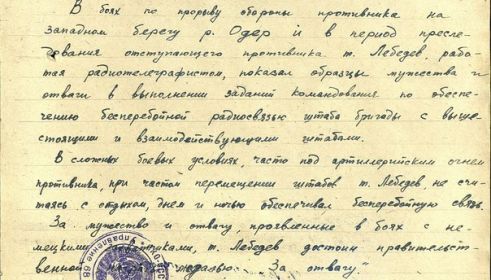 В боях по прорыву обороны противника на
западном берегу р. Одер и в период пресле-
дования отступающего противника т. Лебедев, рабо-
тая радиотелеграфистом, показал образцы мужества и
отваги в выполнении заданий командования по обеспе-
чению бесперебойной радиосвязью штаба бригады с выше-
стоящими и взаимодействующими штабами.
В сложных боевых условиях, часто под артиллерийским огнем
противника, при частом перемещении штабов т. Лебедев, не счи-
таясь с отдыхом, днем и ночью обеспечивал бесперебойную связь.
За мужество и отвагу, проявленные в боях с не-
мецкими т. Лебедев достоин правительст-
венной медалью "За отвагу."